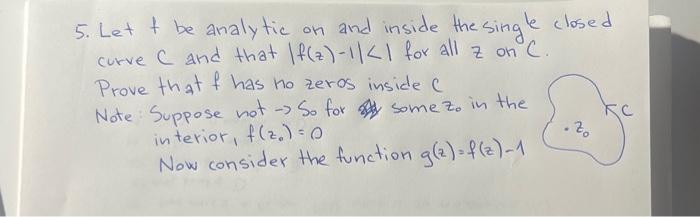 5. Let f be analytic on and inside the single closed
curve C and that |f(z)-1|<1 for all z on C.
Prove that f has no zeros inside C
Note: Suppose not → So for some z₀ in the
interior, f(z₀)=0
Now consider the function g(z)=f(z)-1
C
z₀